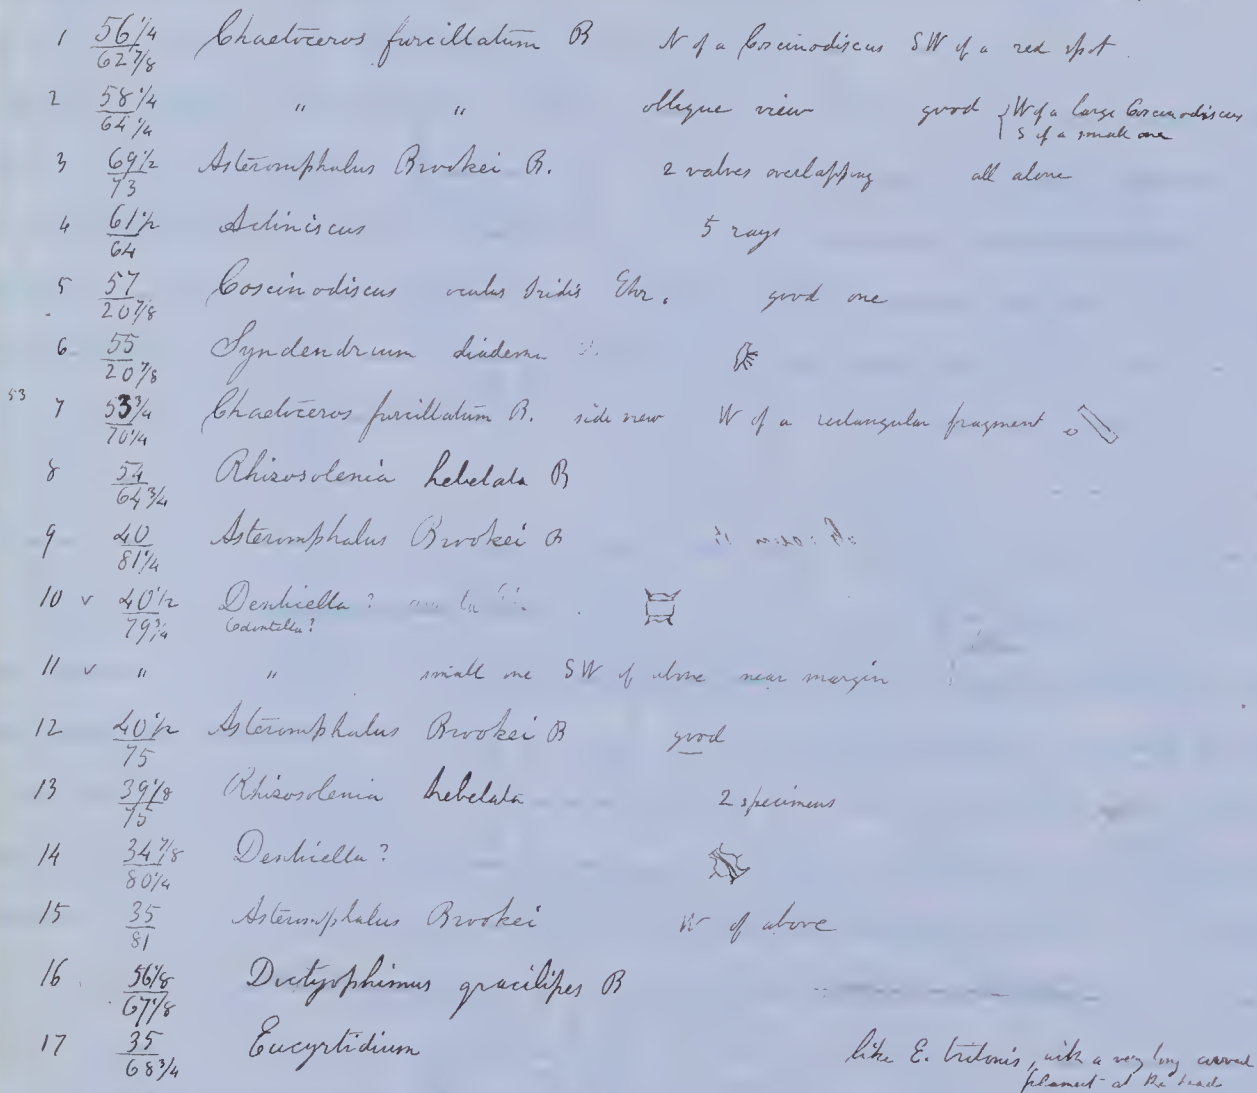 1 56 1/4 / 62 7/8 Chaetoceros furcillatum B N of a Coscinodiscus SW of a red spot
2 58 1/4 / 64 1/4 " " oblique view good { W of a large Coscinodiscus
S of a small one
3 69 1/2 / 73 Asteromphalus Brookei B. 2 valves overlapping all alone
4 61 1/2 / 64 Actiniscus 5 rays
5 57 / 20 7/8 Coscinodiscus oculus Iridis Ehr. good one
6 55 / 20 7/8 Syndendrium diadema
53 7 53 3/4 / 70 1/4 Chaetoceros furcillatum B. side view W of a rectangular fragment
8 54 / 64 3/4 Rhizosolenia hebetata B
9 40 / 81 1/4 Asteromphalus Brookei B
10 v 40 1/2 / 79 3/4 Denticella ?
Odontella ?
11 v " " small one SW of above near margin
12 40 1/2 / 75 Asteromphalus Brookei B good
13 39 1/8 / 75 Rhizosolenia hebetata 2 specimens
14 34 7/8 / 80 1/4 Denticella ?
15 35 / 81 Asteromphalus Brookei W of above
16 56 1/8 / 67 7/8 Dictyophimus gracilipes B
17 35 / 68 3/4 Eucyrtidium like E. tritonis, with a very long curved
filament at the head